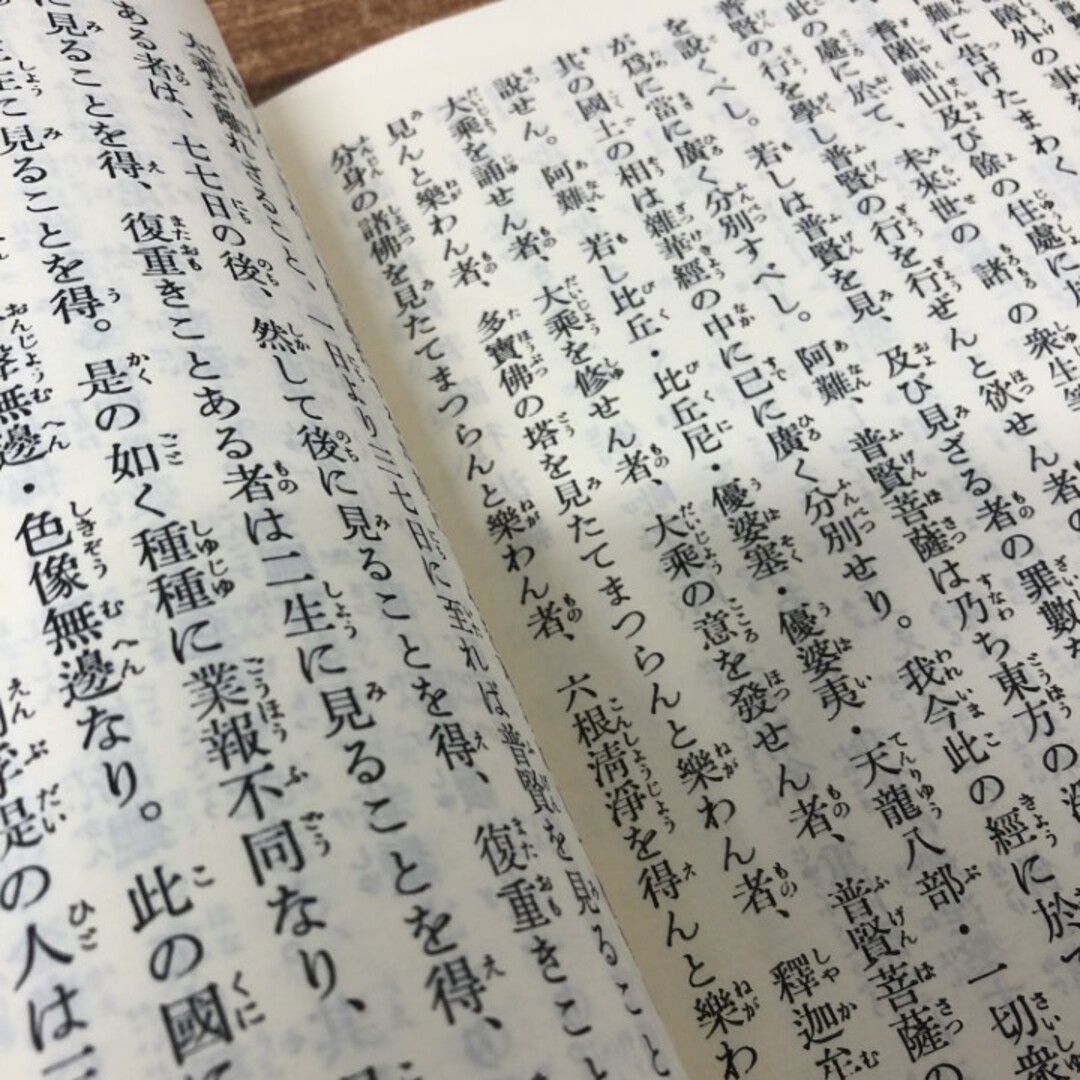 障外の事を
難に告げたまわく
耆闍崛山及び餘の住處に於
此の處に於て、未來世の諸の衆生等
普賢の行を學し普賢の行を行ぜんと欲せん者の
を説くべし。若しは普賢を見、及び見ざる者の罪數を
が爲に當に廣く分別すべし。阿難、普賢菩薩は乃ち東方の淨
其の國土の相は雜華經の中に已に廣く分別せり。我今此の經に於て
説せん。阿難、若し比丘・比丘尼・優婆塞・優婆夷・天龍八部・一切衆
大乘を誦せん者、大乘を修せん者、大乘の意を發せん者、普賢菩薩の
見んと樂わん者、多寶佛の塔を見たてまつらんと樂わん者、釋迦牟
分身の諸佛を見たてまつらんと樂わん者、六根清淨を得んと樂わ
大乘を離れざること、一日より三七日に至れば普賢を見ること
ある者は、七七日の後、然して後に見ることを得、復重きこと
に見ることを得、復重きことある者は二生に見ることを得、
生に見ることを得。是の如く種種に業報不同なり、
無邊・色像無邊なり。此の國に
提の人は三